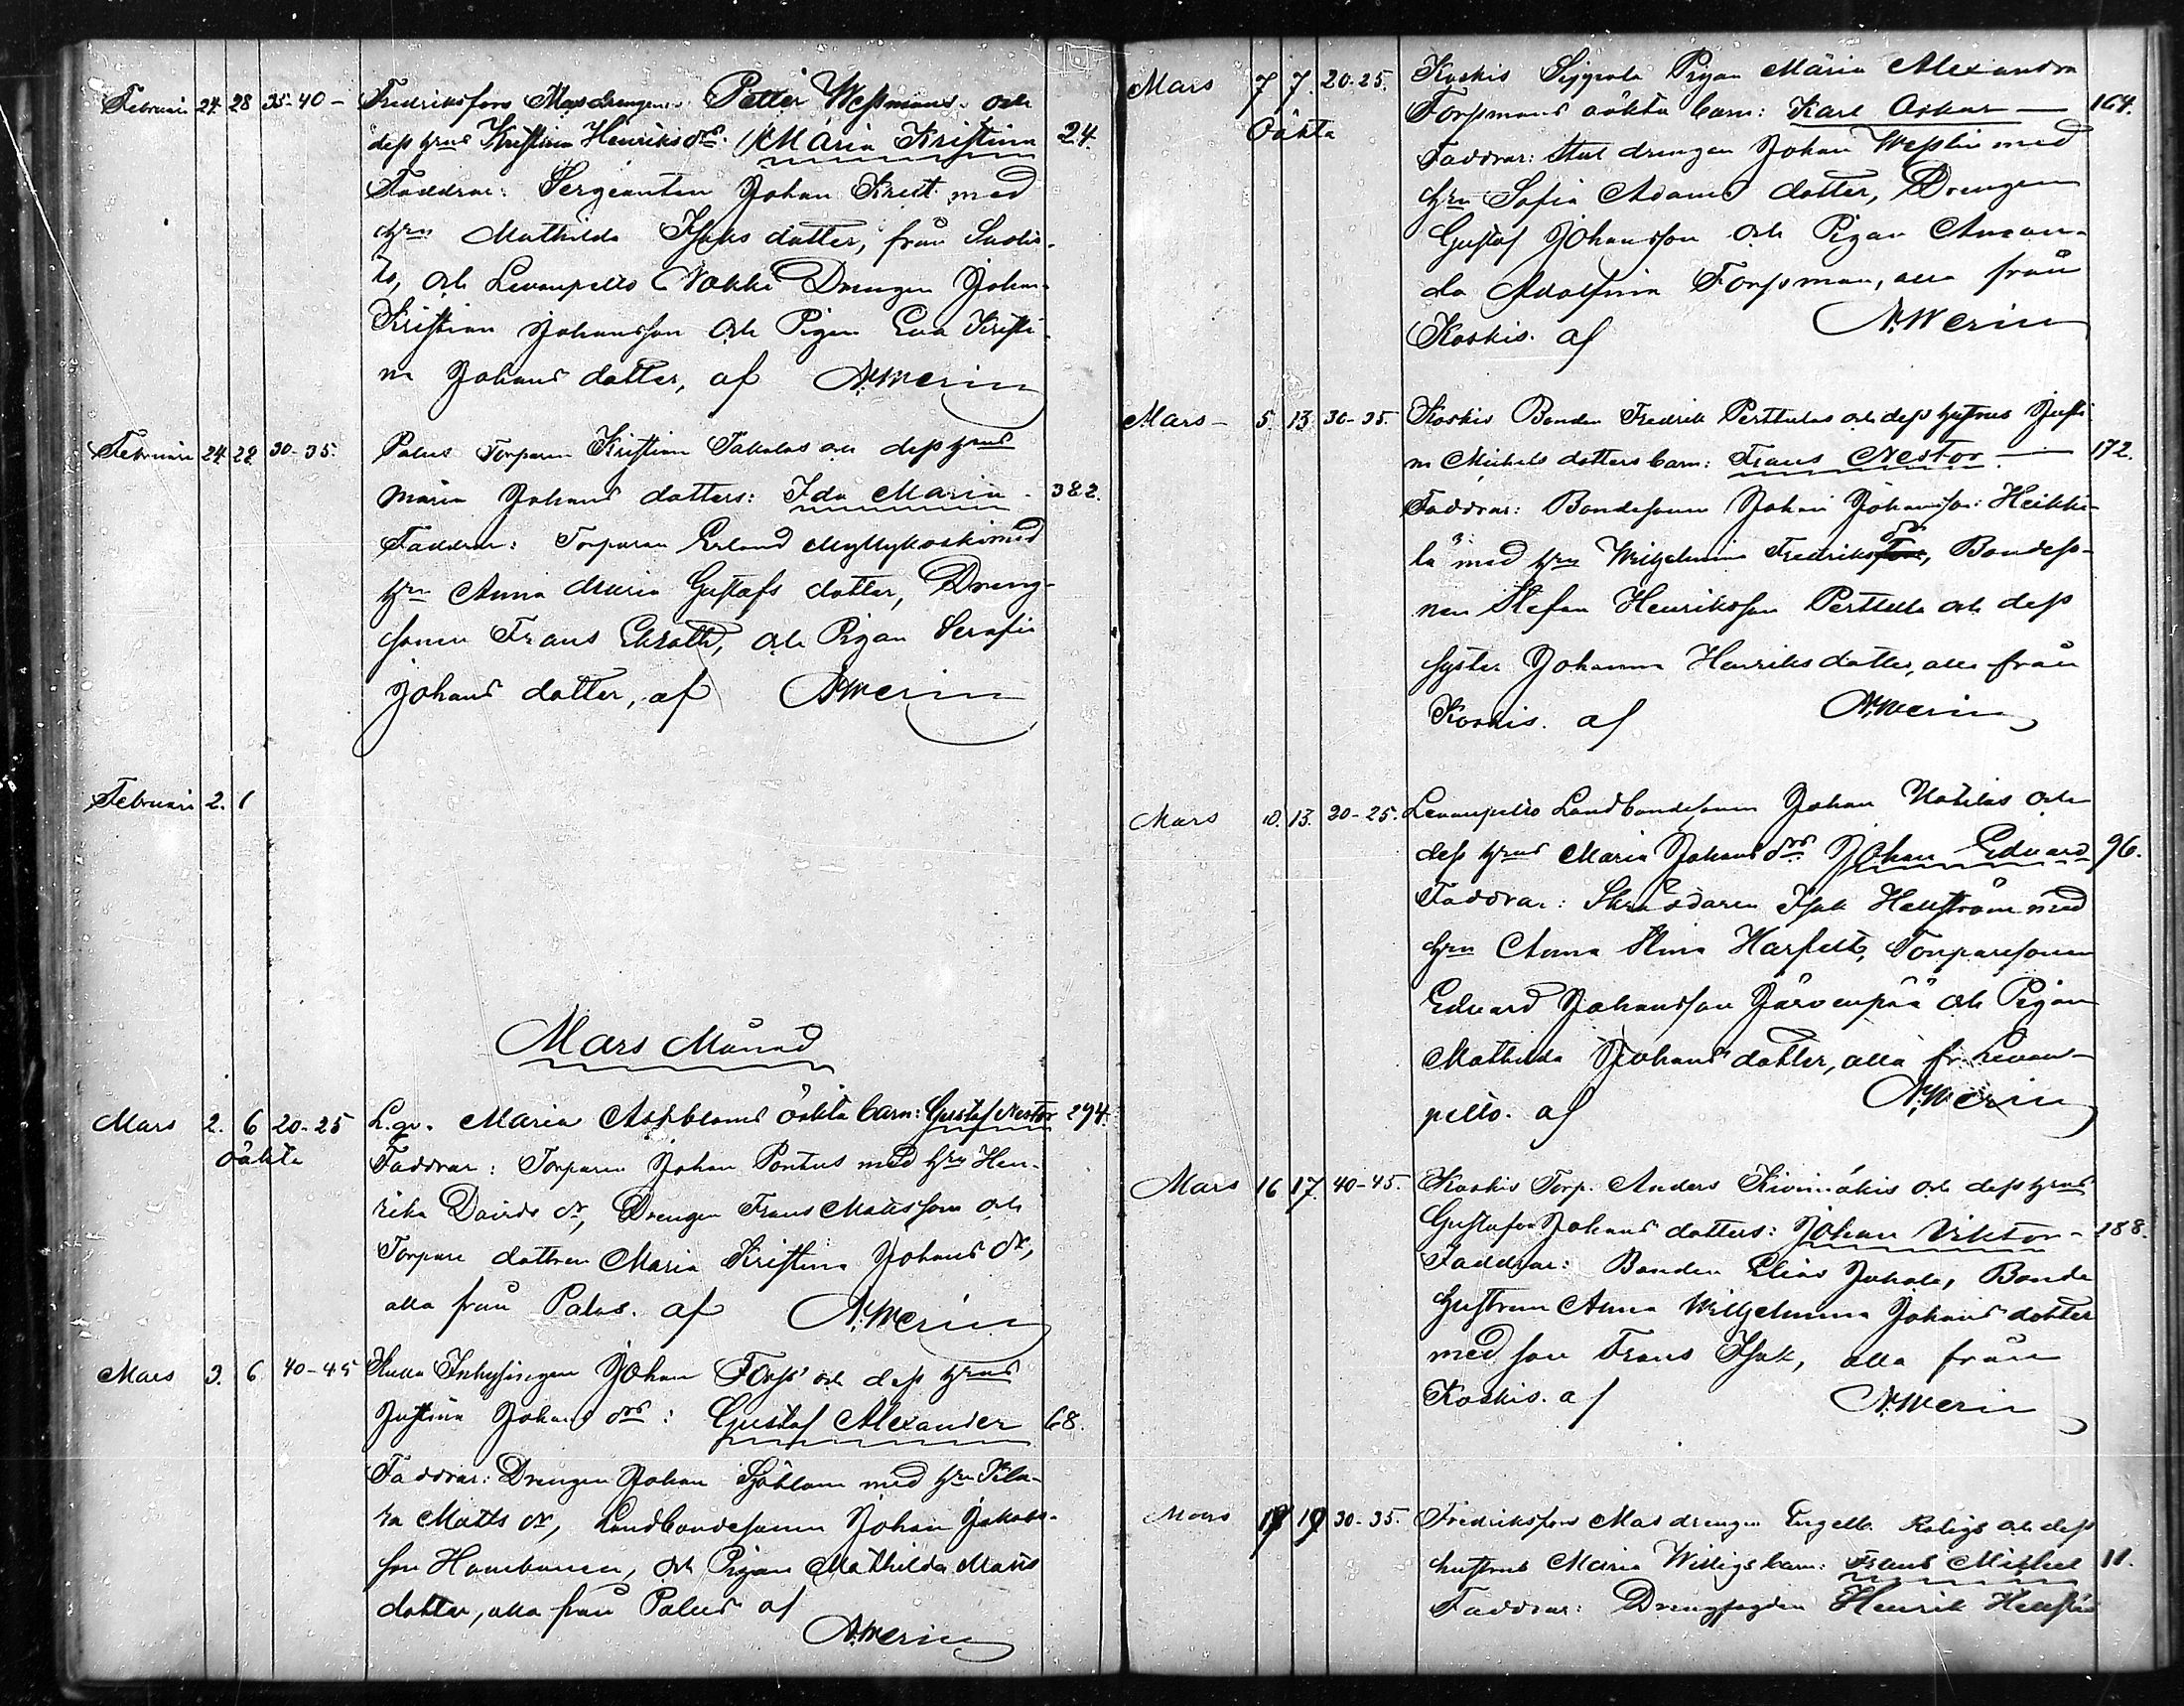 Februari 24 28 35-40 - Fredriksfors Masdrengens Petter Wessmans och
dess hrus Kristina Henriksdrs: Maria Kristina 24.
Faddrar: Sergeanten Johan Kreet med
hrn Mathilda Isaks datter, från
och Levanpelto Nokki Drengen Johan
Kristian Johansson och Pigan Eva Kristi-
na Johans datter, af A.Merin
Februari 24 28 30-35. Palus Torparen Kristian Takalas och dess hrus
Maria Johans datters: Ida Maria - 382.
Faddrar: Torparen Erland Myllykoski med
hrn Anna Maria Gustafs datter, Dreng-
sonen Frans Ekroth, och Pigan Serafia
Johans datter, af A.Merin
Februari 2. 1
Mars Månad
Mars 2. 6 20-25 L.gr. Maria Askbloms oäkta barn: Gustaf Nestor 294.
oäkta Faddrar: Torparen Johan Pontus med hrn Hen-
rika Davids dr, Drengen Frans Matsson och
Torpare dattren Maria Kristina Johans dr,
alla från Palus. af A.Merin
Mars 3. 6 40-45 Kulla Inhysingen Johan Forss' och dess hrus
Justina Johans drs: Gustaf Alexander 68.
Faddrar: Drengen Johan Sjöblom med hrn
Matts dr, Landbondesonen Johan Jakobs-
son, och Pigan Mathilda Matts
datter, alla från Palus af
A.Merin
Mars 7 7. 20-25. Koskis Pigan Maria Alexandra
oäkta Forssmans oäkta barn: Karl Oskar — 164.
Faddrar: Stal drengen Johan Wesslin med
hrn Sofia Adams datter, Drengen
Gustaf Johansson och Pigan Aman-
da Adolfina Forssman, alla från
Koskis. af A.Merin
Mars - 5. 13 30-35. Koskis Bonden Fredrik Perttulas och dess hustrus Justi-
na Michels datters barn: Frans Nestor — 172.
Faddrar: Bondesonen Johan Johansson Heikki-
lä med hrn Wilhelmina Fredriks dr, Bondeso-
nen Stefan Henriksson Perttula och dess
syster Johanna Henriks datter, alla från
Koskis. af A.Merin
Mars 10. 13. 20-25. Levanpelto Landbondesonen Johan och
dess hrus Maria Johans drs Johan Edvard 96.
Faddrar: Skräddaren Isak Hellström med
hrn Anna Stina Harfelt, Torparesonen
Edvard Johansson Järvenpää och Pigan
Mathilda Johans datter, alla fr. Levan-
pelto. af A.Merin
Mars 16 17. 40-45. Koskis Torp. Anders Kivimäkis och dess hrus
Gustafva Johans datters: Johan Viktor - 188.
Faddrar: Bonden Elias Juhala, Bonde
hustrun Anna Wilhelmina Johans datter
med son Frans Isak, alla från
Koskis. af A.Merin
Mars 19 19 30-35. Fredriksfors Mas drengen Engelb. Roligs och dess
hustrus Maria Willigs barn: Frans Mikael 11.
Faddrar: Drengfogden Henrik